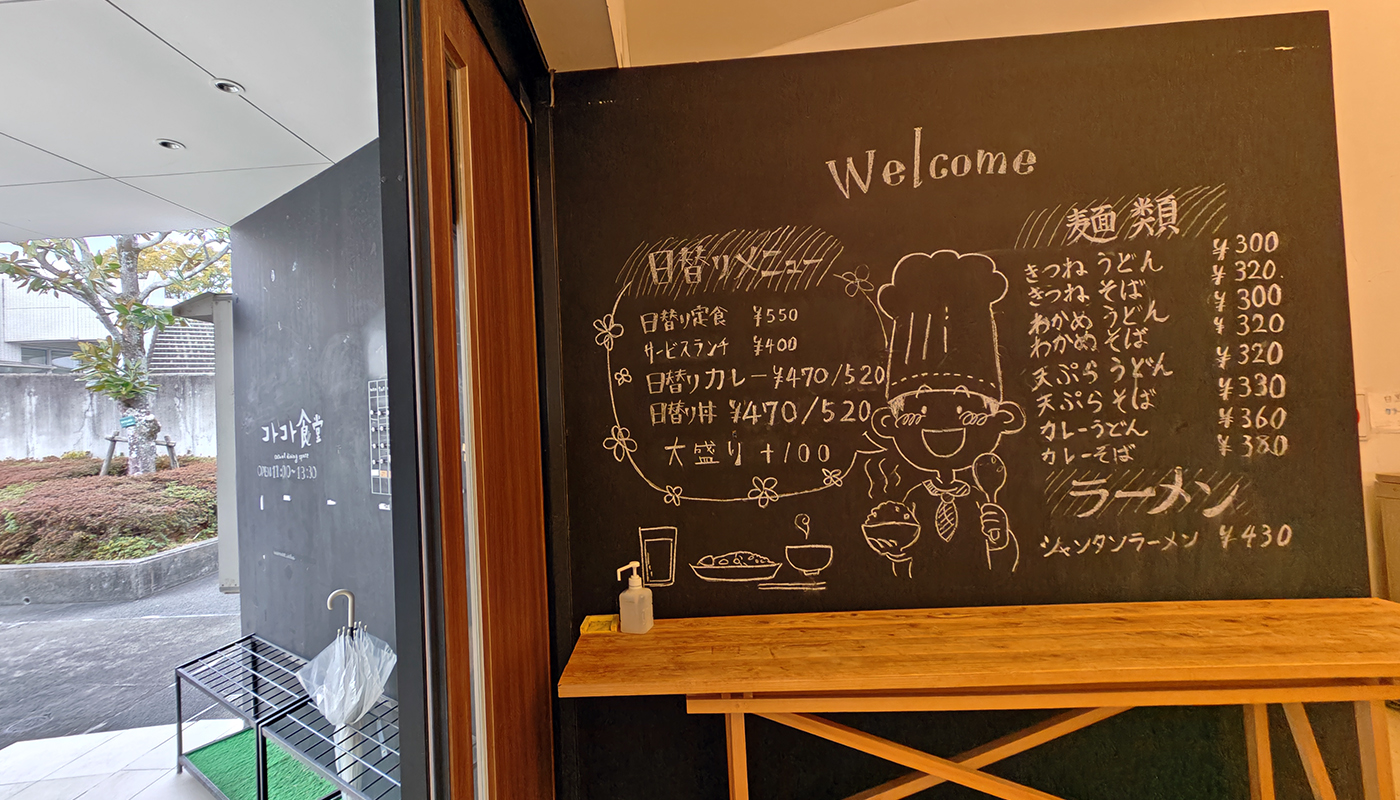 コトコト食堂
casual dining space
OPEN 11:00~13:30
Welcome
日替りメニュー
日替り定食 ¥550
サービスランチ ¥400
日替りカレー ¥470/520
日替り丼 ¥470/520
大盛り +100
麺類
きつねうどん ¥300
きつねそば ¥320
わかめうどん ¥300
わかめそば ¥320
天ぷらうどん ¥320
天ぷらそば ¥330
カレーうどん ¥360
カレーそば ¥380
ラーメン
シャンタンラーメン ¥430